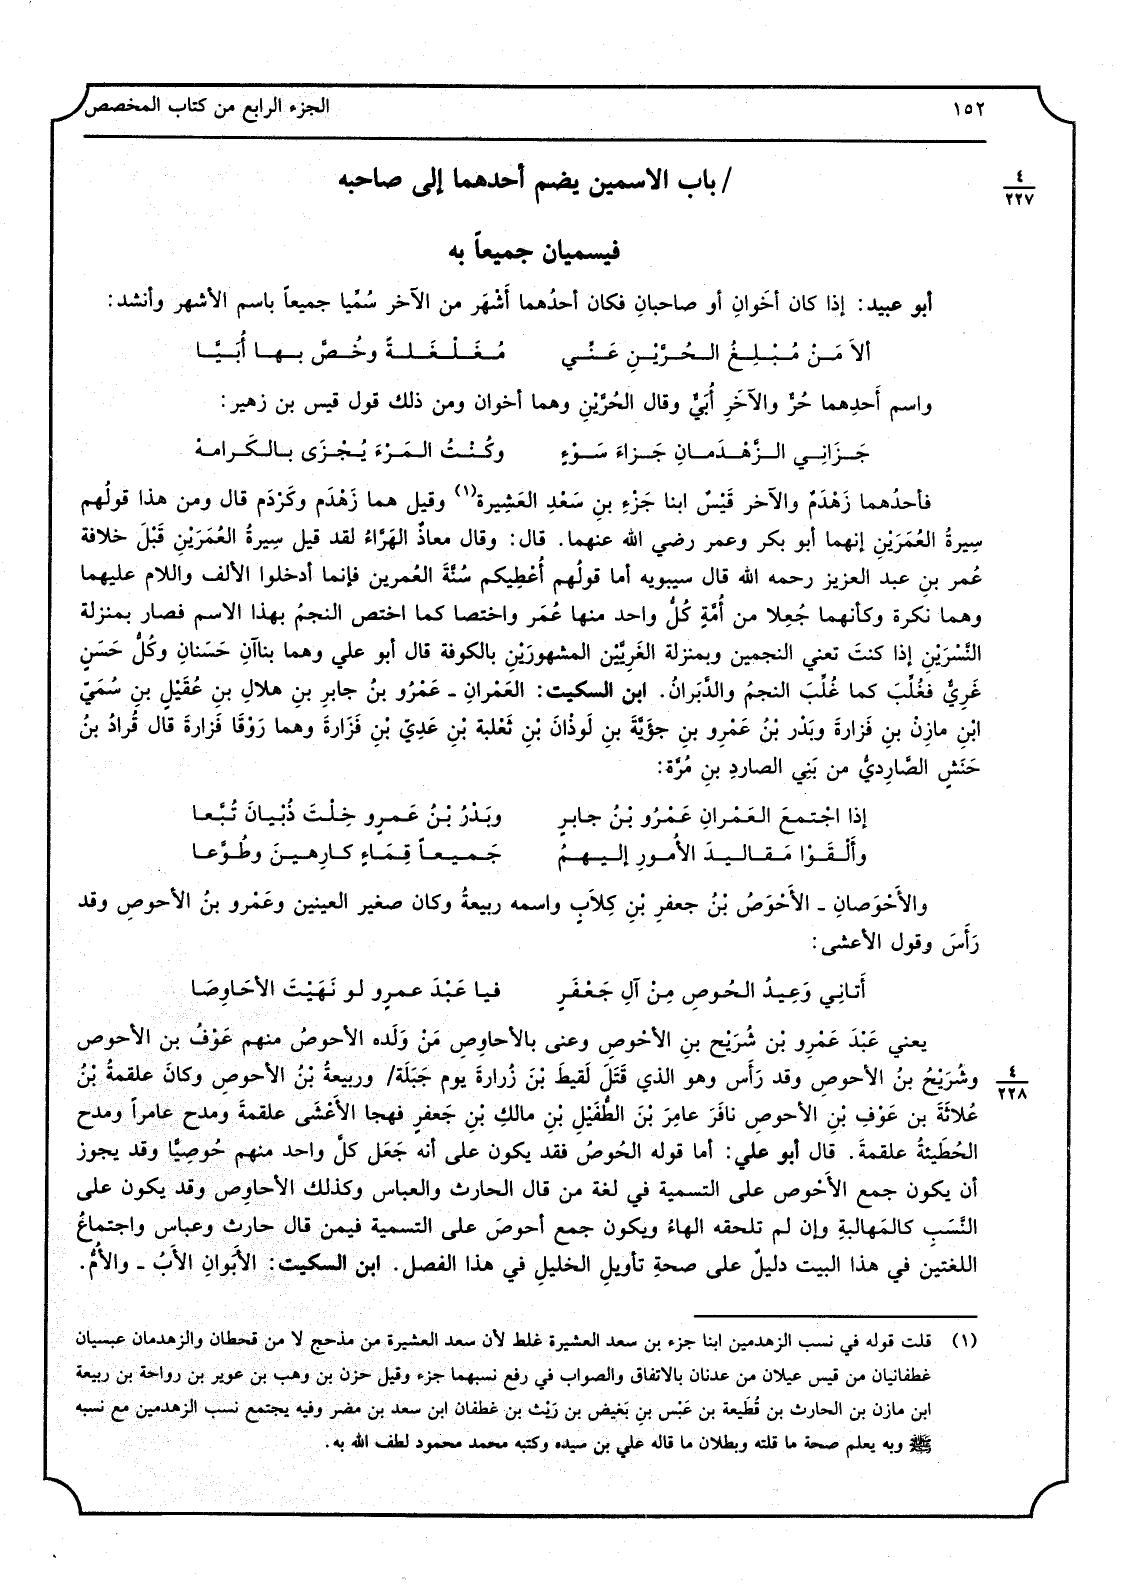 ١٥٢ الجزء الرابع من كتاب المخصص
٤
٢٢٧
/ باب الاسمين يضم أحدهما إلى صاحبه
فيسميان جميعاً به
أبو عبيد: إذا كان أخَوانِ أو صاحبان فكان أحدُهما أَشْهَر من الآخر سُمِّيا جميعاً باسم الأشهر وأنشد:
ألاَ مَـنْ مُـبْـلِـغُ الـحُـرَّيْـنِ عَـنِّـي مُـغَـلْـغَـلـةً وخُـصَّ بـهـا أُبَـيَّـا
واسم أَحدِهما حُرٌّ والآخَرِ أُبَيٌّ وقال الحُرَّيْنِ وهما أخوان ومن ذلك قول قيس بن زهير:
جَـزَانِـي الـزَّهْـدَمـانِ جَـزاءَ سَـوْءٍ وكُـنْـتُ الـمَـرْءَ يُـجْـزَى بـالـكَـرامـهْ
فأحدُهما زَهْدَمٌ والآخر قَيْسٌ ابنا جَزْءِ بنِ سَعْدِ العَشِيرة(١) وقيل هما زَهْدَم وكَرْدَم قال ومن هذا قولُهم
سِيرةُ العُمَرَيْنِ إنهما أبو بكر وعمر رضي الله عنهما. قال: وقال معاذٌ الهَرَّاءُ لقد قيل سِيرةُ العُمَرَيْنِ قَبْلَ خلافة
عُمر بنِ عبد العزيز رحمه الله قال سيبويه أما قولُهم أُعْطِيكم سُنَّةَ العُمرين فإنما أدخلوا الألف واللام عليهما
وهما نكرة وكأنهما جُعِلا من أُمَّةٍ كُلُّ واحد منها عُمَر واختصا كما اختص النجمُ بهذا الاسم فصار بمنزلة
النَّسْرَيْنِ إذا كنتَ تعني النجمين وبمنزلة الغَرِيَّيْن المشهورَيْنِ بالكوفة قال أبو علي وهما بناآنِ حَسَنانِ وكُلُّ حَسَنٍ
غَرِيٌّ فغُلِّبَ كما غُلِّبَ النجمُ والدَّبَرانُ. ابن السكيت: العَمْرانِ ـ عَمْرُو بنُ جابرِ بنِ هلالِ بنِ عُقَيْلِ بنِ سُمَيّ
ابْنِ مازِنْ بنِ فَزارة وبَدْر بْنُ عَمْرو بنِ جؤيَّةَ بنِ لَوذْانَ بْنِ ثَعْلبة بْنِ عَدِيّ بْنِ فَزَارةَ وهما رَوْقَا فَزارةَ قال قُرادُ بنُ
حَنَشٍ الصَّارِديُّ من بَنِي الصاردِ بنِ مُرَّة:
إذا اجْـتـمـعَ العَـمْـرانِ عَـمْـرُو بْـنُ جـابرٍ وبَـدْرُ بْـنُ عَـمـرٍو خِـلْـتَ ذُبْـيـانَ تُـبَّـعـا
وأَلْـقَـوْا مَـقـالـيـدَ الأُمـورِ إلـيـهـمُ جَـمـيـعـاً قِـمَـاءٍ كـارِهـيـنَ وطُـوَّعـا
والأَحْوَصانِ ـ الأَحْوَصُ بْنُ جعفرِ بْنِ كِلاَبٍ واسمه ربيعةُ وكان صغير العينين وعَمْرو بنُ الأحوصِ وقد
رَأَسَ وقول الأعشى:
أَتـانِي وَعِـيـدُ الـحُـوصِ مِـنْ آلِ جَـعْـفَـرٍ فـيـا عَـبْـدَ عـمـرٍو لـو نَـهَـيْـتَ الأحَـاوِصَـا
يعني عَبْدَ عَمْرو بْن شُرَيْح بنِ الأحْوصِ وعنى بالأحاوِصِ مَنْ وَلَده الأحوصُ منهم عَوْفُ بن الأحوص
وشُرَيْحُ بنُ الأحوصِ وقد رَأَس وهو الذي قَتَلَ لَقيطَ بْنَ زُرارةَ يوم جَبَلَة/ وربيعةُ بْنُ الأحوصِ وكانَ علقمةُ بْنُ
٤
٢٢٨
عُلاثَةَ بن عَوْفِ بْنِ الأحوصِ نافَرَ عامِرَ بْنَ الطُّفَيْلِ بْنِ مالكِ بْنِ جَعفرٍ فهجا الأَعْشَى علقمةَ ومدح عامراً ومدح
الحُطَيئةُ علقمةَ. قال أبو علي: أما قوله الحُوصُ فقد يكون على أنه جَعَل كلَّ واحد منهم حُوصِيًّا وقد يجوز
أن يكون جمع الأحْوص على التسمية في لغة من قال الحارث والعباس وكذلك الأحاوِص وقد يكون على
النَّسَبِ كالمَهالبةِ وإن لم تلحقه الهاءُ ويكون جمع أحوصَ على التسمية فيمن قال حارث وعباس واجتماعُ
اللغتين في هذا البيت دليلٌ على صحةِ تأويلِ الخليلِ في هذا الفصل. ابن السكيت: الأَبَوانِ الأَبُ ـ والأُمُّ.
(١) قلت قوله في نسب الزهدمين ابنا جزء بن سعد العشيرة غلط لأن سعد العشيرة من مذحج لا من قحطان والزهدمان عبسيان
غطفانيان من قيس عيلان من عدنان بالاتفاق والصواب في رفع نسبهما جزء وقيل حزن بن وهب بن عوير بن رواحة بن ربيعة
ابن مازن بن الحارث بن قُطَيعة بن عَبْس بنِ بَغيض بن رَيْث بن غطفان ابن سعد بن مضر وفيه يجتمع نسب الزهدمين مع نسبه
ﷺ وبه يعلم صحة ما قلته وبطلان ما قاله علي بن سيده وكتبه محمد محمود لطف الله به.